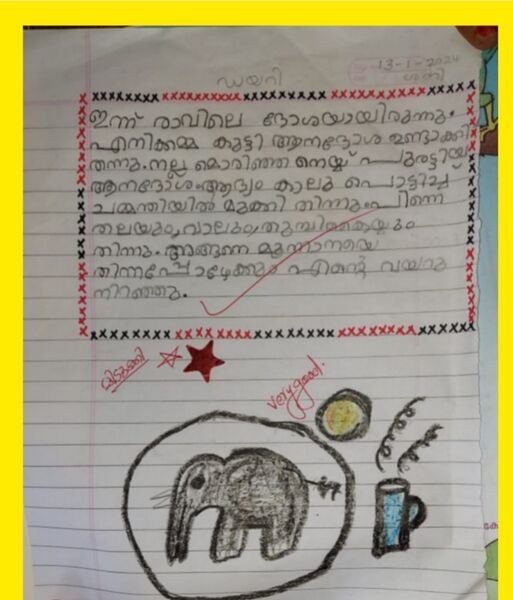 13-1-2024
ശനി
ഡയറി
ഇന്ന് രാവിലെ ദോശയായിരുന്നു.
എനിക്കമ്മ കുട്ടി ആനദോശ ഉണ്ടാക്കി
തന്നു. നല്ല മൊരിഞ്ഞ നെയ്യ് പുരട്ടിയ
ആനദോശ. ആദ്യം കാലു പൊട്ടിച്ച്
ചമ്മന്തിയിൽ മുക്കി തിന്നു. പിന്നെ
തലയും, വാലും, തുമ്പിക്കൈയും
തിന്നു. അങ്ങനെ മൂന്നാനയെ
തിന്നപ്പോഴേക്കും എൻ്റെ വയറു
നിറഞ്ഞു.
മിടുക്കി
very good.